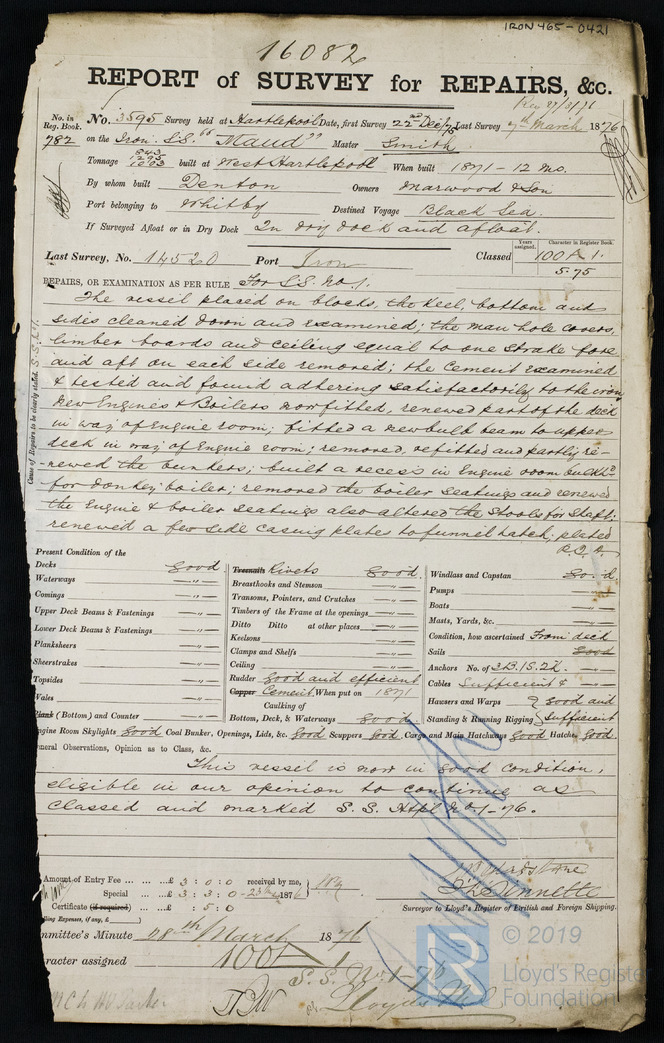 IRON 465-0421
16082
REPORT of SURVEY for REPAIRS, &c.
Rec 27/3/76
No. in Reg. Book. No. 3595 Survey held at Hartlepool Date, first Survey 22nd Dec/75 Last Survey 7th March 1876
782 on the Iron S.S. "Maud" Master Smith
Tonnage 843 1295 1003 built at West Hartlepool When built 1871 - 12 mo.
By whom built Denton Owners Marwood & Son
Port belonging to Whitby Destined Voyage Black Sea.
If Surveyed Afloat or in Dry Dock In dry dock and afloat.
Years assigned. Character in Register Book.
Last Survey, No. 14520 Port Iron Classed 100 A 1.
5.75
REPAIRS, OR EXAMINATION AS PER RULE For S.S. No. 1.
Cause of Repairs to be clearly stated.
The vessel placed on blocks, the keel, bottom and
sides cleaned down and examined; the man hole covers,
limber boards and ceiling equal to one strake fore
and aft on each side removed; the cement examined
& tested and found adhering satisfactorily to the iron
New Engines & Boilers now fitted, renewed part of the deck
in way of Engine room; fitted a new bulb beam to upper
deck in way of Engine room; removed, refitted and partly re-
newed the bunkers; built a recess in Engine room bulkhd
for donkey boiler; removed the boiler seatings and renewed
the Engine & boiler seatings also altered the stools for shaft;
renewed a few side casing plates to funnel hatch; plated
Present Condition of the
Decks good Treenails Rivets good. Windlass and Capstan good
Waterways " Breasthooks and Stemson " Pumps "
Comings " Transoms, Pointers, and Crutches " Boats "
Upper Deck Beams & Fastenings " Timbers of the Frame at the openings " Masts, Yards, &c. "
Lower Deck Beams & Fastenings " Ditto Ditto at other places " Condition, how ascertained From deck
Planksheers " Keelsons " Sails Good
Sheerstrakes " Clamps and Shelfs " Anchors No. of 3B.1S.2K.
Topsides " Ceiling " Cables Sufficient &
Wales " Rudder Good and efficient Hawsers and Warps good and
Plank (Bottom) and Counter " Copper Cement. When put on 1871 Standing & Running Rigging sufficient
Caulking of
Bottom, Deck, & Waterways good
Engine Room Skylights Good Coal Bunker, Openings, Lids, &c. Good Scuppers Good Cargo and Main Hatchways Good Hatches Good
General Observations, Opinion as to Class, &c.
This vessel is now in good condition,
eligible in our opinion to continue as
classed and marked S. S. Htpl No. 1 - 76.
Amount of Entry Fee £ 3 : 0 : 0 received by me,
Special £ 3 : 3 : 0 1876
Certificate (if required) £ : 5 : 0
Surveyor to Lloyd's Register of British and Foreign Shipping.
Committee's Minute 28th March 1876
Character assigned 100 A 1
S. S. No 1-76
© 2019
Lloyd's Register
Foundation